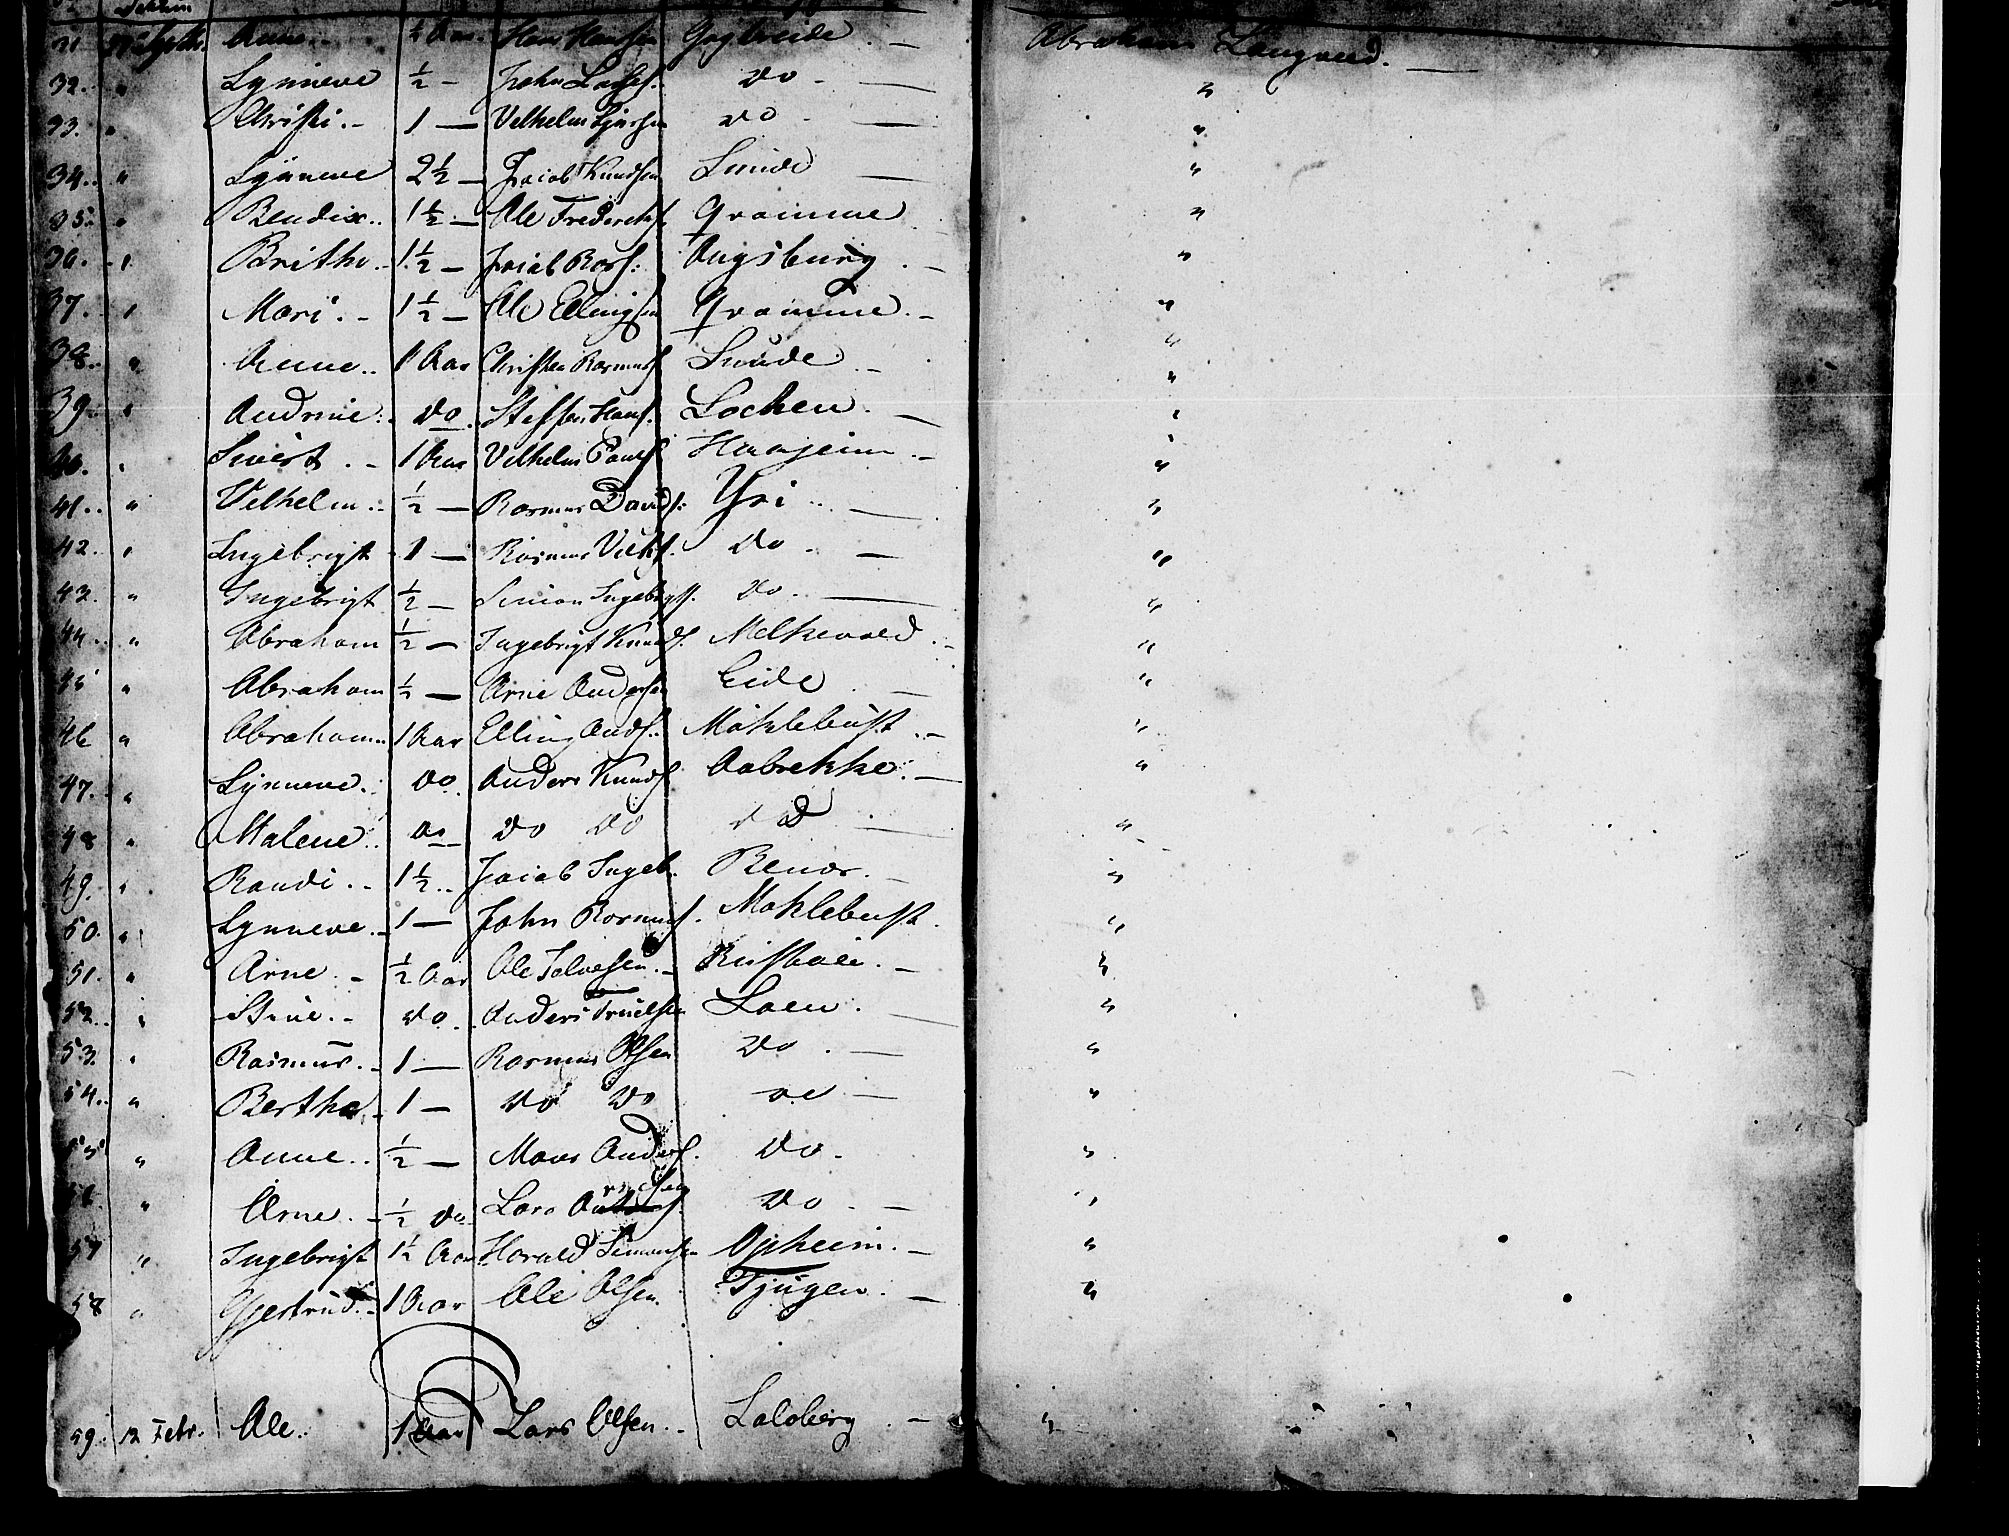 31 Septbr. Anne ½ Aar. Hans Hansen Gytreide. — Abraham Langved. —
32. " Synneve ½ — John Lasses. do. — "
33. " Christi. — 1 — Velhelm do — "
34. " Synneve 2½ — Jacob Knudsen Sunde — "
35. " Bendix.. 1½ — Ole Frederiks. Qvamme "
36. " Brithe. 1½ — Jacob Ras: Augsburg. — "
37. " Mari. — 1½ — Ole Ellingsen Qvamme. — "
38. " Anne.. 1 Aar Christen Rasmuss Sunde. — "
39. " Andrine. do. Steffen Hans. Lochen. — "
40. " Sivert. — 1 Aar Velhelm Pauls Haajeim. — "
41. " Velhelm. ½ — Rasmus Davids: Yri.. — "
42. " Ingebrigt 1 — Rasmus Velhs. do. — "
43. " Ingebrigt ½ — Simon Ingebrigts. do. — "
44. " Abraham ½ — Ingebrigt Knuds. Melkevold. — "
45 " Abraham ½ — Arne Andersen Eide. — "
46 " Abraham.. 1 Aar Elling Ands. Mohlebust. — "
47. " Synneve. do. Anders Knuds. Aabrekke. — "
48 " Malene. do do do do — "
49. " Randi. — 1½.. Jacob Ingeb. — "
50. " Synneve. 1 — John Rasmuss. Mohlebust. "
51. " Arne. — ½ Aar Ole — "
52. " Stine. — do. Anders Truelsen Loen. — "
53. " Rasmus. 1 — Rasmus Olsen do. — "
54. " Berthe. 1 — do do do — "
55 " Anne.. ½ — Mons Anders. do. "
56. " Arne. — ½ do Lars do. — "
57 " Ingebrigt 1½ Aar Harald Simonsen Opheim. — "
58 " Gjertrud. — 1 Aar Ole Olsen. Tjugen. — "
59. 12 Febr. Ole. 1 Aar Lars Olsen. Loloberg. — "